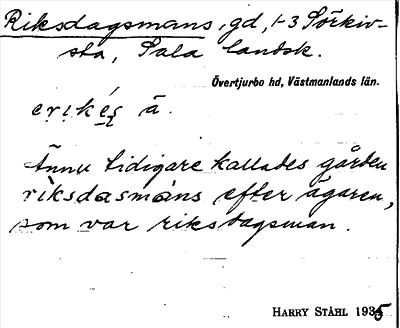 Riksdagsmans, gd, 1-3 Sörkiv-
sta, Sala landsk.
Övertjurbo hd, Västmanlands län.
erikes ä.
Ännu tidigare kallades gården
riksdasmáns efter ägaren,
som var riksdagsman.
HARRY STÅHL 1935